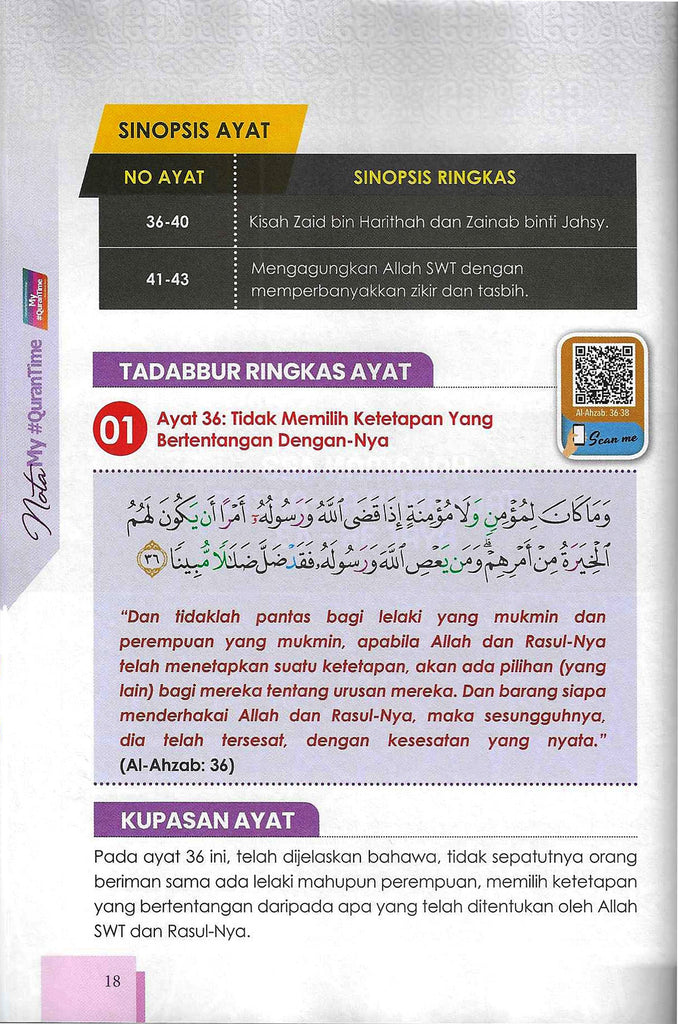 SINOPSIS AYAT
NO AYAT SINOPSIS RINGKAS
36-40 Kisah Zaid bin Harithah dan Zainab binti Jahsy.
41-43 Mengagungkan Allah SWT dengan
memperbanyakkan zikir dan tasbih.
My
#QuranTime
Nota My #QuranTime
TADABBUR RINGKAS AYAT
Al-Ahzab: 36-38
Scan me
01 Ayat 36: Tidak Memilih Ketetapan Yang
Bertentangan Dengan-Nya
وَمَا كَانَ لِمُؤْمِنٍ وَلَا مُؤْمِنَةٍ إِذَا قَضَى ٱللَّهُ وَرَسُولُهُۥٓ أَمْرًا أَن يَكُونَ لَهُمُ
ٱلْخِيَرَةُ مِنْ أَمْرِهِمْ ۗ وَمَن يَعْصِ ٱللَّهَ وَرَسُولَهُۥ فَقَدْ ضَلَّ ضَلَـٰلًا مُّبِينًا ٣٦
“Dan tidaklah pantas bagi lelaki yang mukmin dan
perempuan yang mukmin, apabila Allah dan Rasul-Nya
telah menetapkan suatu ketetapan, akan ada pilihan (yang
lain) bagi mereka tentang urusan mereka. Dan barang siapa
menderhakai Allah dan Rasul-Nya, maka sesungguhnya,
dia telah tersesat, dengan kesesatan yang nyata.”
(Al-Ahzab: 36)
KUPASAN AYAT
Pada ayat 36 ini, telah dijelaskan bahawa, tidak sepatutnya orang
beriman sama ada lelaki mahupun perempuan, memilih ketetapan
yang bertentangan daripada apa yang telah ditentukan oleh Allah
SWT dan Rasul-Nya.
18